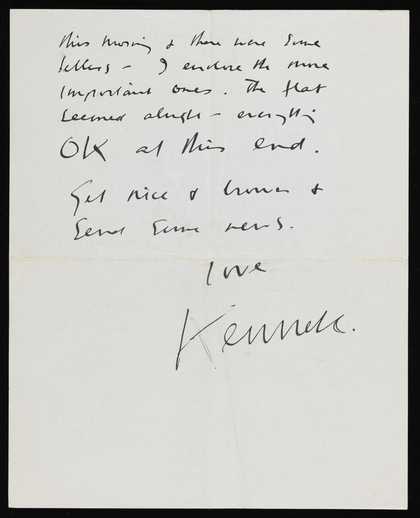 this morning & there were some
letters – I enclose the more
important ones. The flat
seemed alright – everything
OK at this end.
Get nice & brown &
send some news.
love
Kenneth.